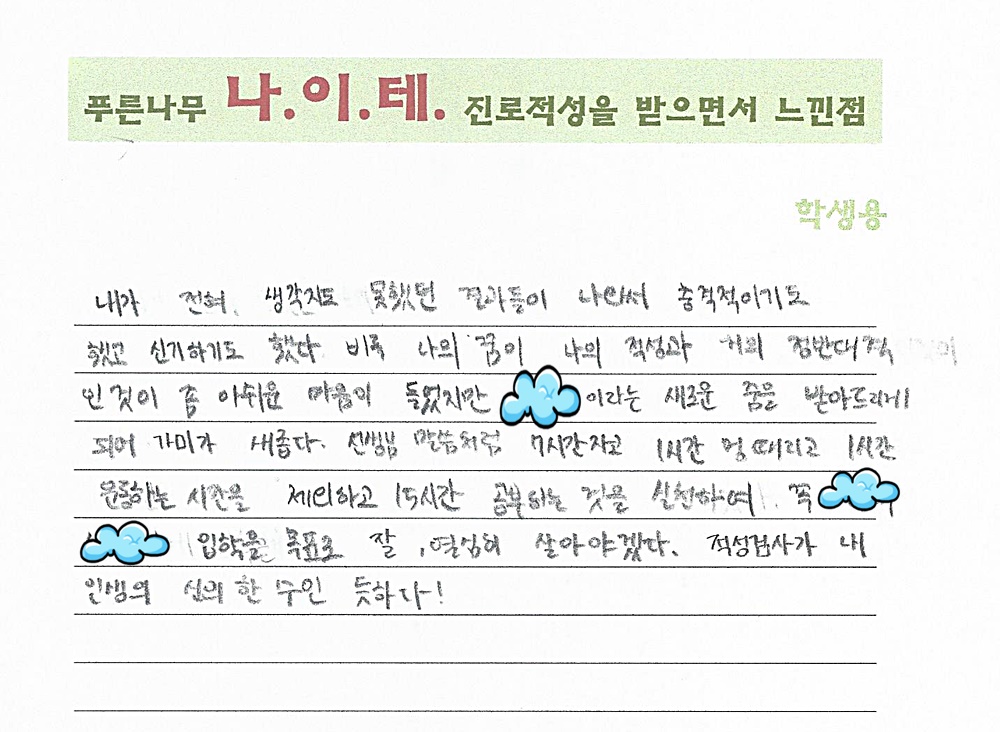 푸른나무 나.이.테. 진로적성을 받으면서 느낀점
학생용
내가 전혀 생각지도 못했던 결과들이 나와서 충격적이기도
했고 신기하기도 했다 비록 나의 꿈이 나의 적성과 거의 정반대적
인 것이 좀 아쉬운 마음이 들었지만 이라는 새로운 꿈을 받아드리게
되어 가미가 새롭다. 선생님 말씀처럼 7시간자고 1시간 멍 때리고 1시간
운동하는 시간을 제외하고 15시간 공부하는 것을 실천하여 꼭
입학을 목표로 잘, 열심히 살아야겠다. 적성검사가 내
인생의 신의 한 수인 듯하다!